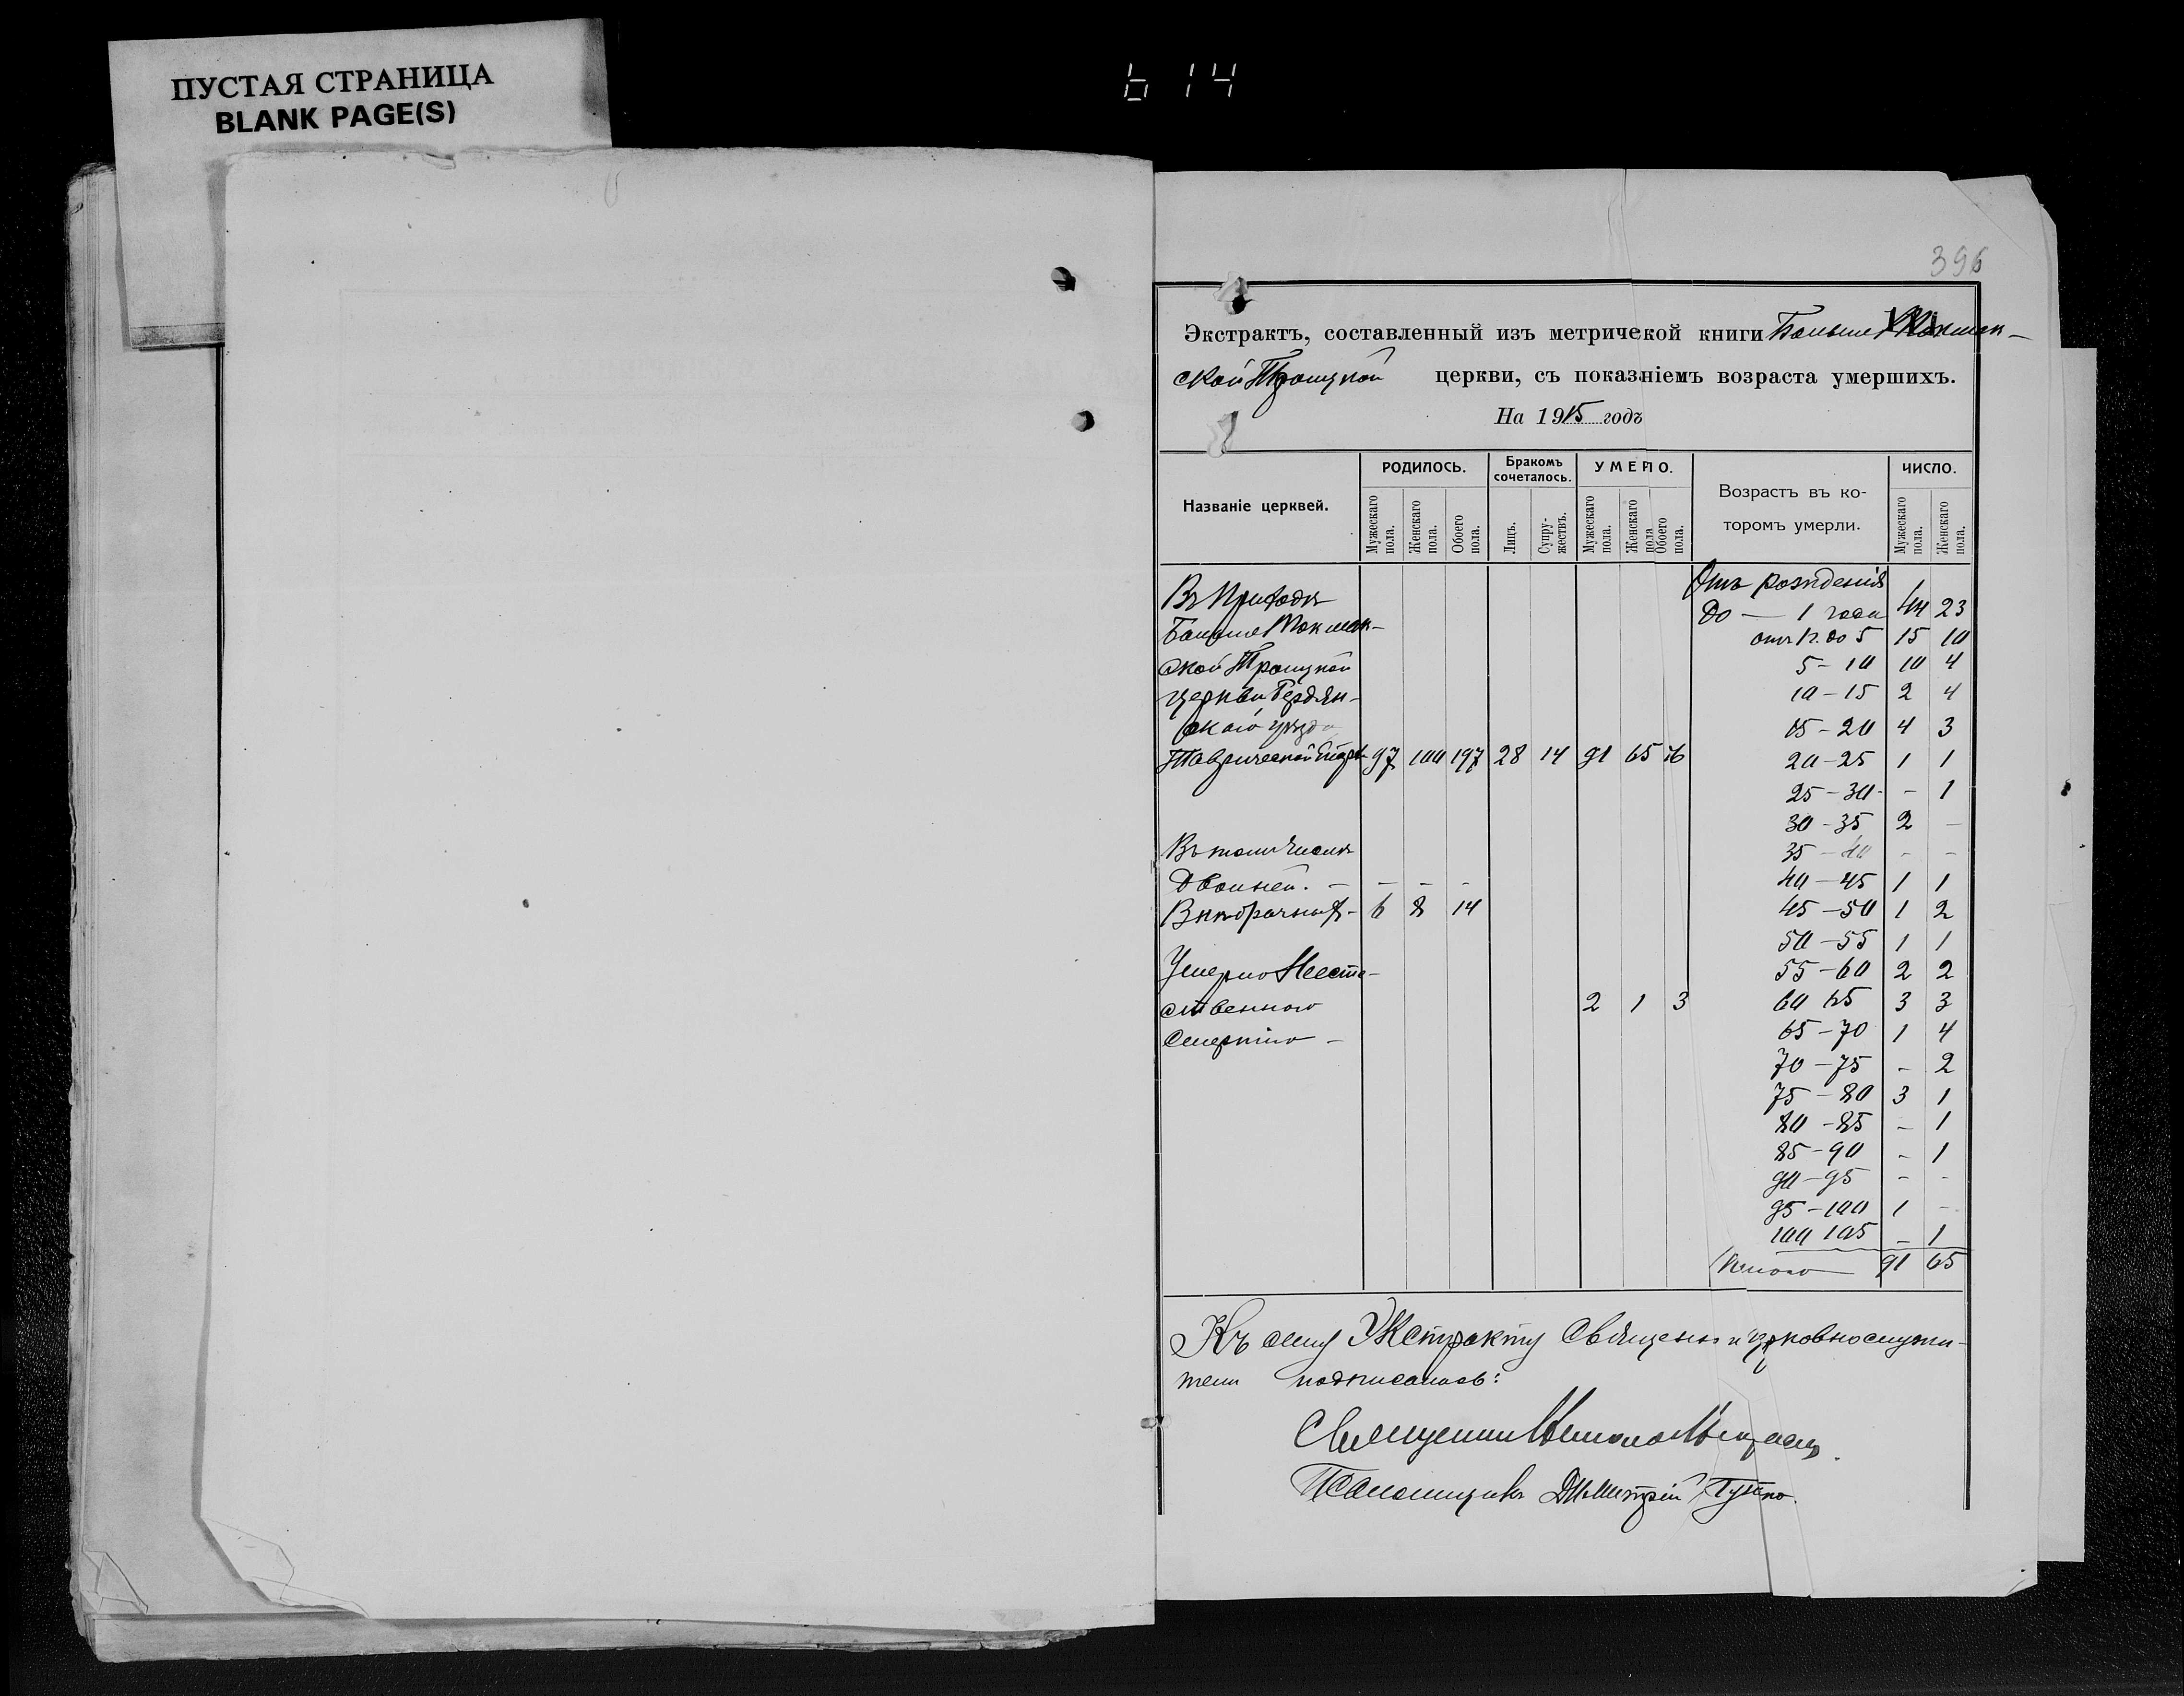 ПУСТАЯ СТРАНИЦА
BLANK PAGE(S)
614
396
Экстрактъ, составленный изъ метрической книги Больше Токмак-
ской Троицкой церкви, съ показаніемъ возраста умершихъ.
На 1915 годъ
Названіе церквей. РОДИЛОСЬ. Бракомъ сочеталось. УМЕРЛО. Возрастъ въ ко-торомъ умерли. ЧИСЛО.
Мужескаго пола. Женскаго пола. Обоего пола. Лицъ. Супру-жествъ. Мужескаго пола. Женскаго пола Обоего пола. Мужескаго пола. Женскаго пола.
Отъ рожденія
Въ Приходѣ
до — 1 года 44 23
Больше Токмак-
отъ 1 г. до 5 15 10
ской Троицкой
5-10 10 4
церкви Бердян-
10-15 2 4
скаго уѣзда
15-20 4 3
Таврической Епарх 97 100 197 28 14 91 65 156
20-25 1 1
25-30 - 1
30-35 2 -
Въ томъ числѣ
35-40 - -
Двойней. - - - -
40-45 1 1
Внѣбрачных - 6 8 14
45-50 1 2
50-55 1 1
Умерло Неесте-
55-60 2 2
ственною 2 1 3
60 65 3 3
Смертію -
65-70 1 4
70-75 - 2
75-80 3 1
80-85 - 1
85-90 - 1
90-95 - -
95-100 1 -
100 105 - 1
Итого 91 65
Къ сему Экстракту Священно и церковнослужи-
тели подписались:
Священник
Псаломщикъ Димитрій